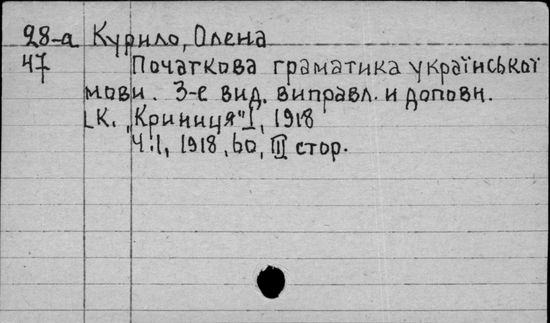 28-а Курило, Олена
47 Початкова граматика української
мови. 3-е вид. виправл. и доповн.
[К. „Криниця"], 1918
Ч.: I, 1918, 60, III стор.